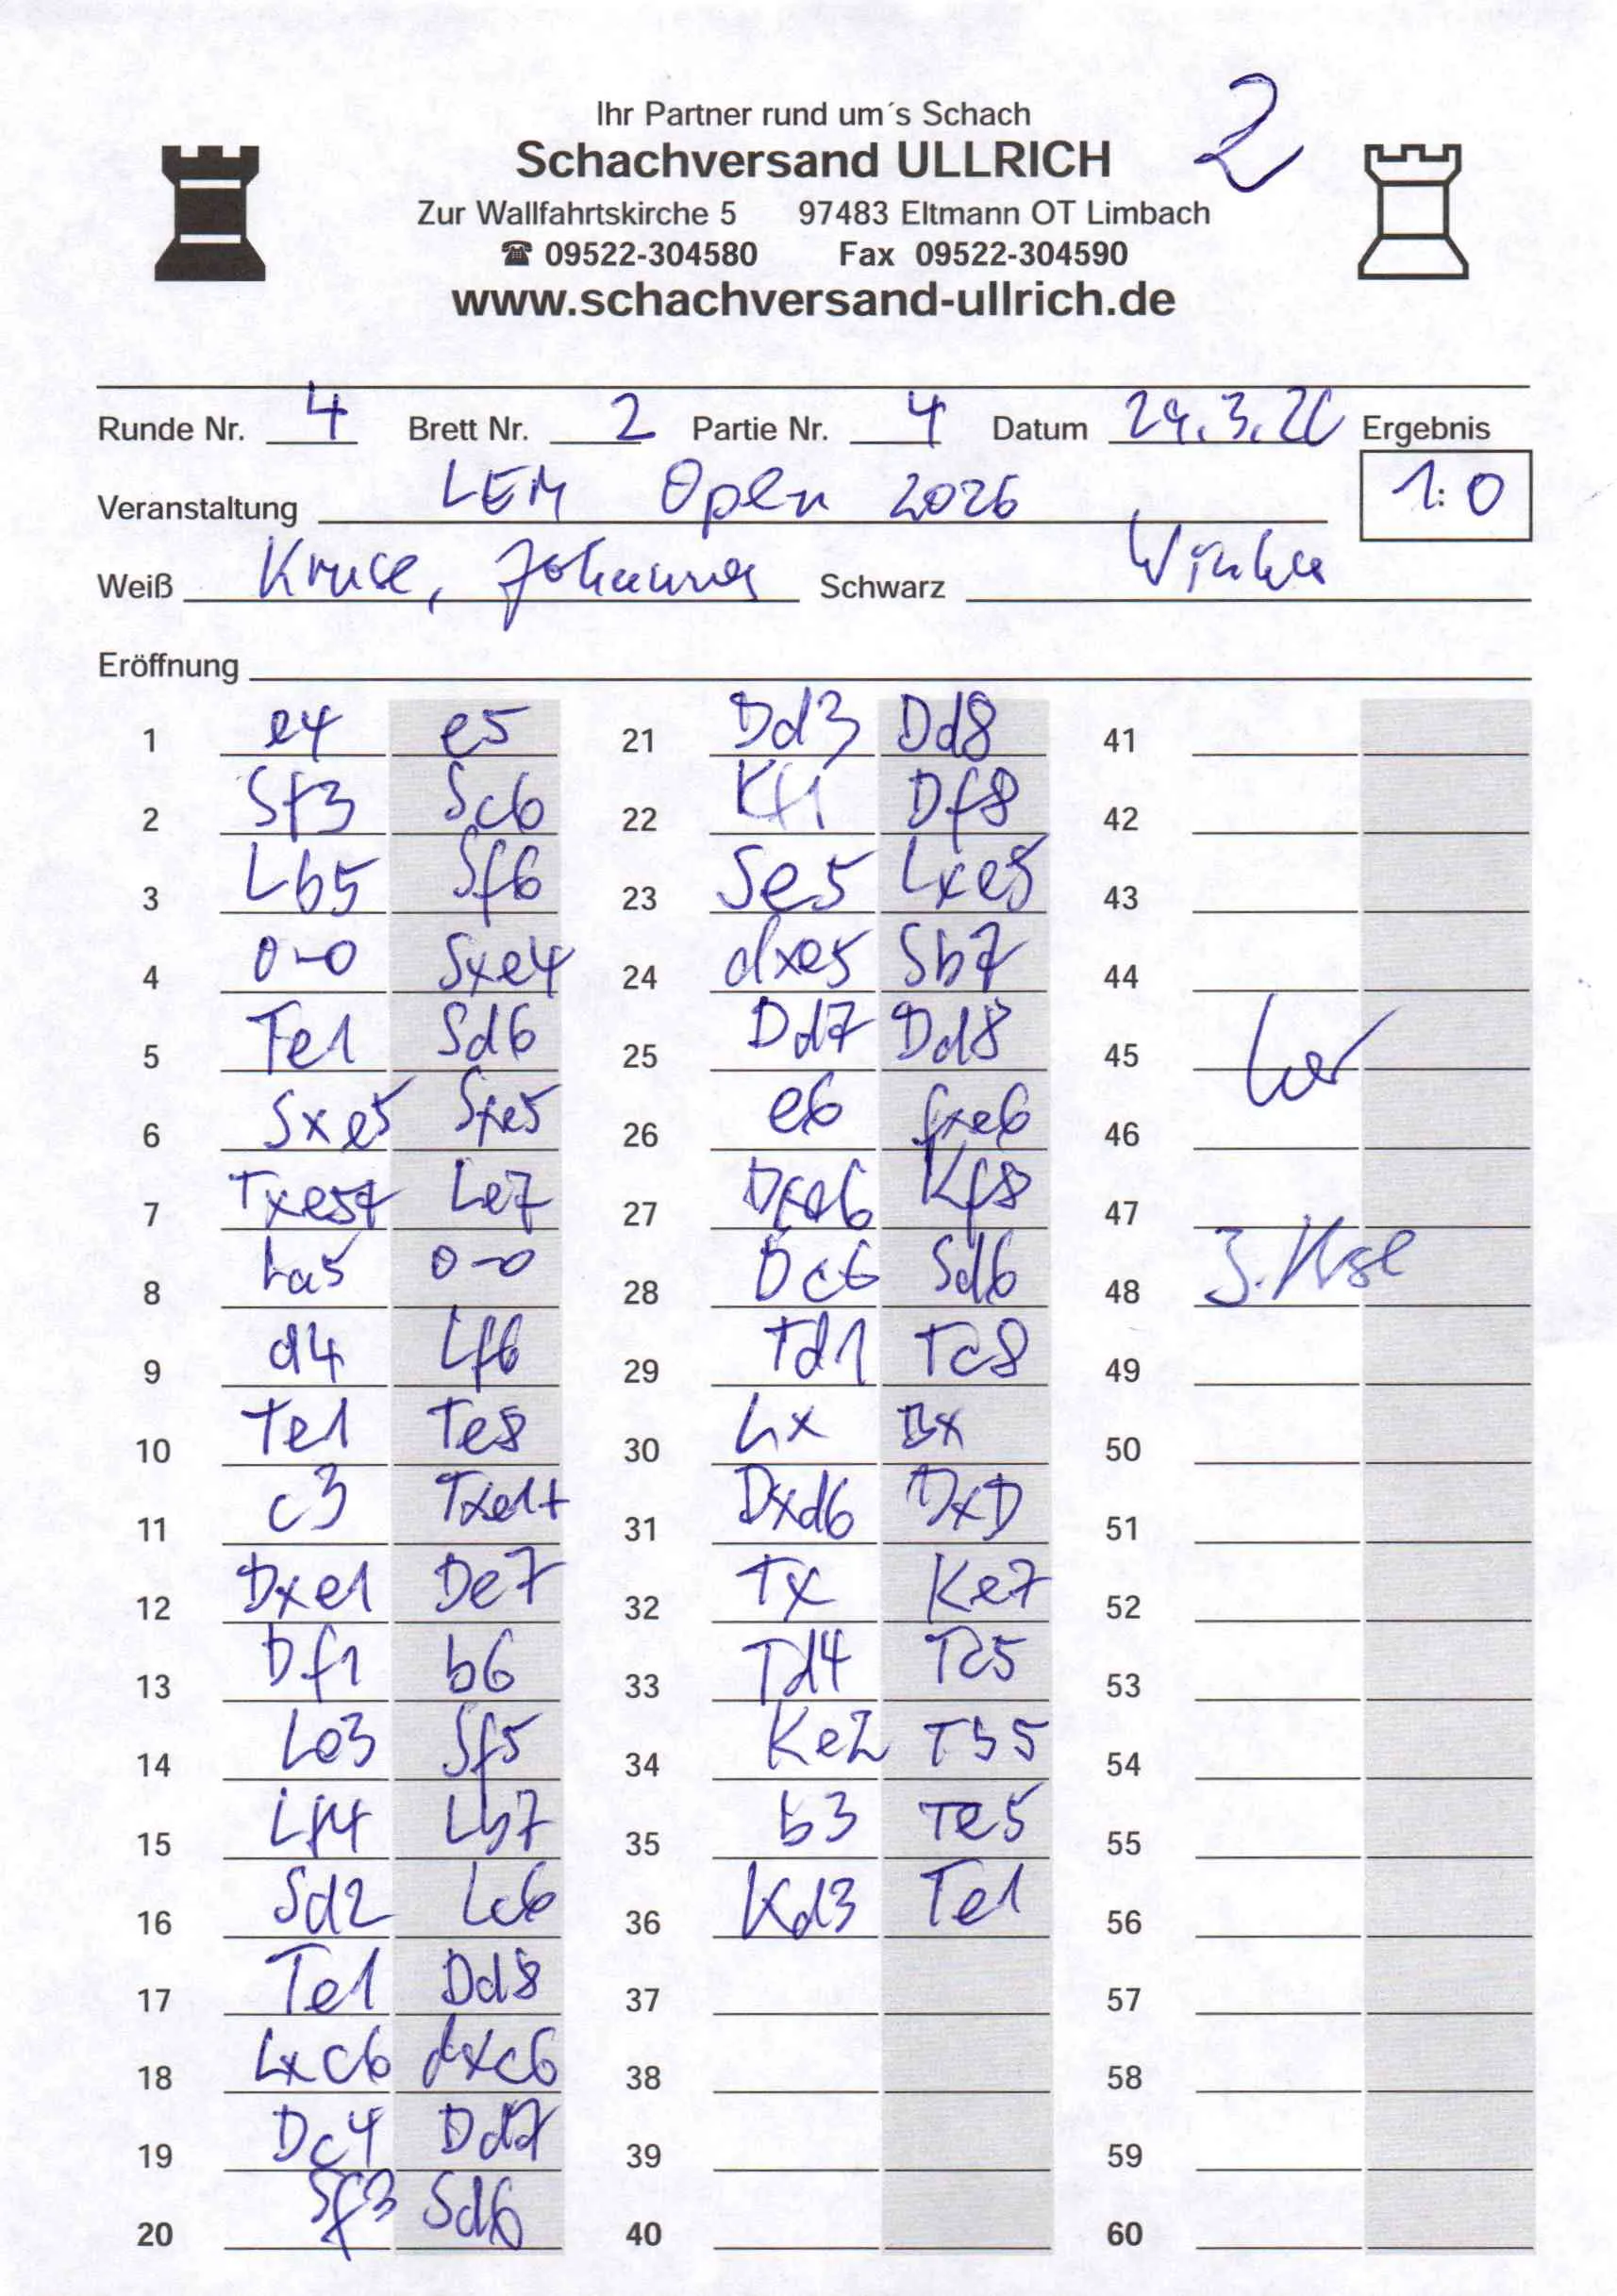 2
Ihr Partner rund um´s Schach
Schachversand ULLRICH
Zur Wallfahrtskirche 5 97483 Eltmann OT Limbach
☎ 09522-304580 Fax 09522-304590
www.schachversand-ullrich.de
Runde Nr. 4 Brett Nr. 2 Partie Nr. 4 Datum Ergebnis
Veranstaltung LEM Open 2026 1:0
Weiß Kruse, Johanna Schwarz
Eröffnung
1 e4 e5 21 Dd3 Dd8 41
2 Sf3 Sc6 22 Kf1 Df8 42
3 Lb5 Sf6 23 Se5 Lxe5 43
4 0-0 Sxe4 24 dxe5 Sb7 44
5 Te1 Sd6 25 Dd7 Dd8 45
6 Sxe5 Sxe5 26 e6 fxe6 46
7 Txe5+ Le7 27 Dxe6 Kf8 47
8 La5 0-0 28 Dc6 Sd6 48
9 d4 Lf6 29 Td1 Tc8 49
10 Te1 Te8 30 Lx Bx 50
11 c3 Txe1+ 31 Dxd6 DxD 51
12 Dxe1 De7 32 Tx Ke7 52
13 Df1 b6 33 Td4 Tc5 53
14 Le3 Sf5 34 Ke2 Tb5 54
15 Lf4 Lb7 35 b3 Te5 55
16 Sd2 Lc6 36 Kd3 Te1 56
17 Te1 Dd8 37 57
18 Lxc6 dxc6 38 58
19 Dc4 Dd7 39 59
20 Sf3 Sd6 40 60